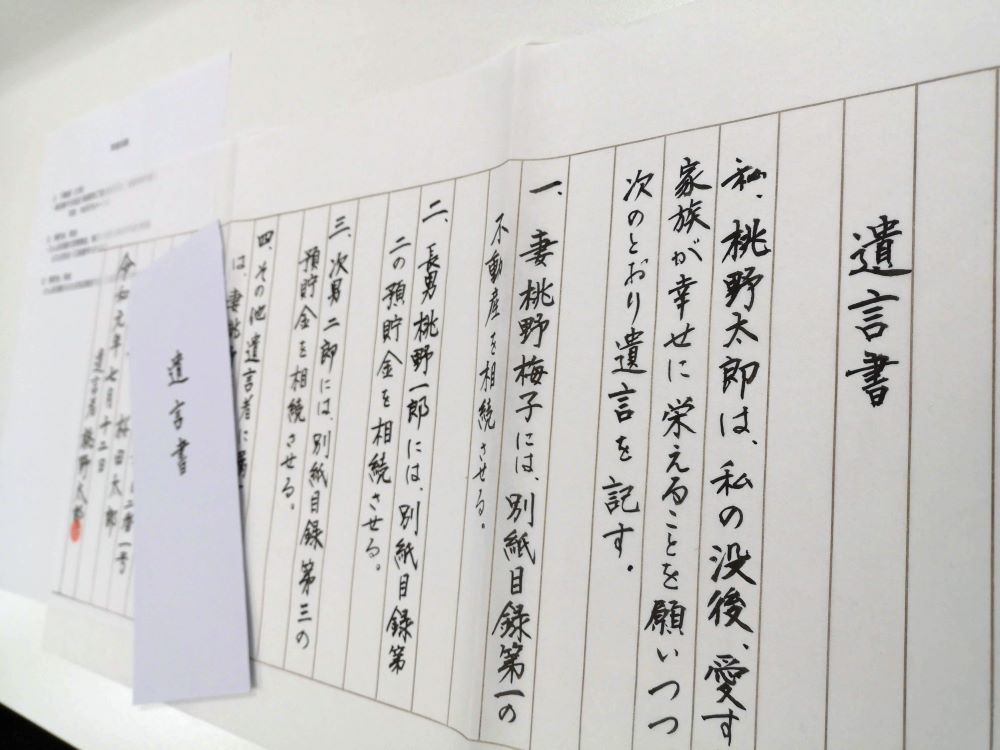 遺言書
私、桃野太郎は、私の没後、愛す
家族が幸せに栄えることを願いつつ
次のとおり遺言を記す。
一、妻桃野梅子には、別紙目録第一の
不動産を相続させる。
二、長男桃野一郎には、別紙目録第
二の預貯金を相続させる。
三、次男二郎には、別紙目録第三の
預貯金を相続させる。
四、その他遺言者に
は、妻
二番一号
桜田太郎
令和元年七月十二日
遺言者桃野太郎
遺言書